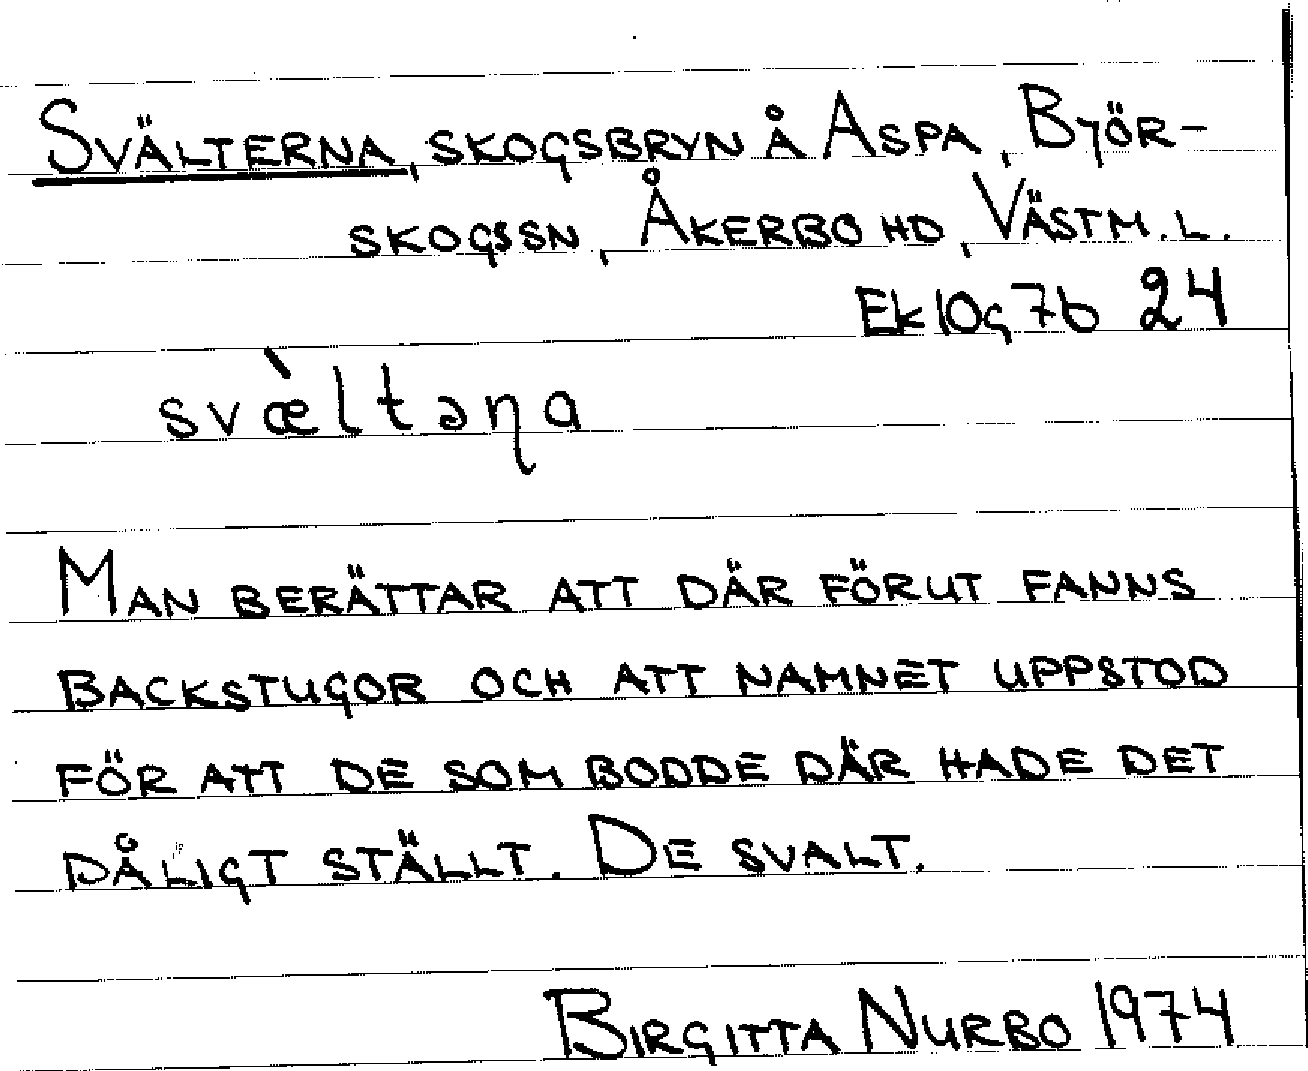 SVÄLTERNA, SKOGSBRYN Å ASPA, BJÖR-
SKOGSSN, ÅKERBO HD, VÄSTM.L.
Ek 10g7b 24
svæ̀ltəɳa
MAN BERÄTTAR ATT DÄR FÖRUT FANNS
BACKSTUGOR OCH ATT NAMNET UPPSTOD
FÖR ATT DE SOM BODDE DÄR HADE DET
DÅLIGT STÄLLT. DE SVALT.
BIRGITTA NURBO 1974